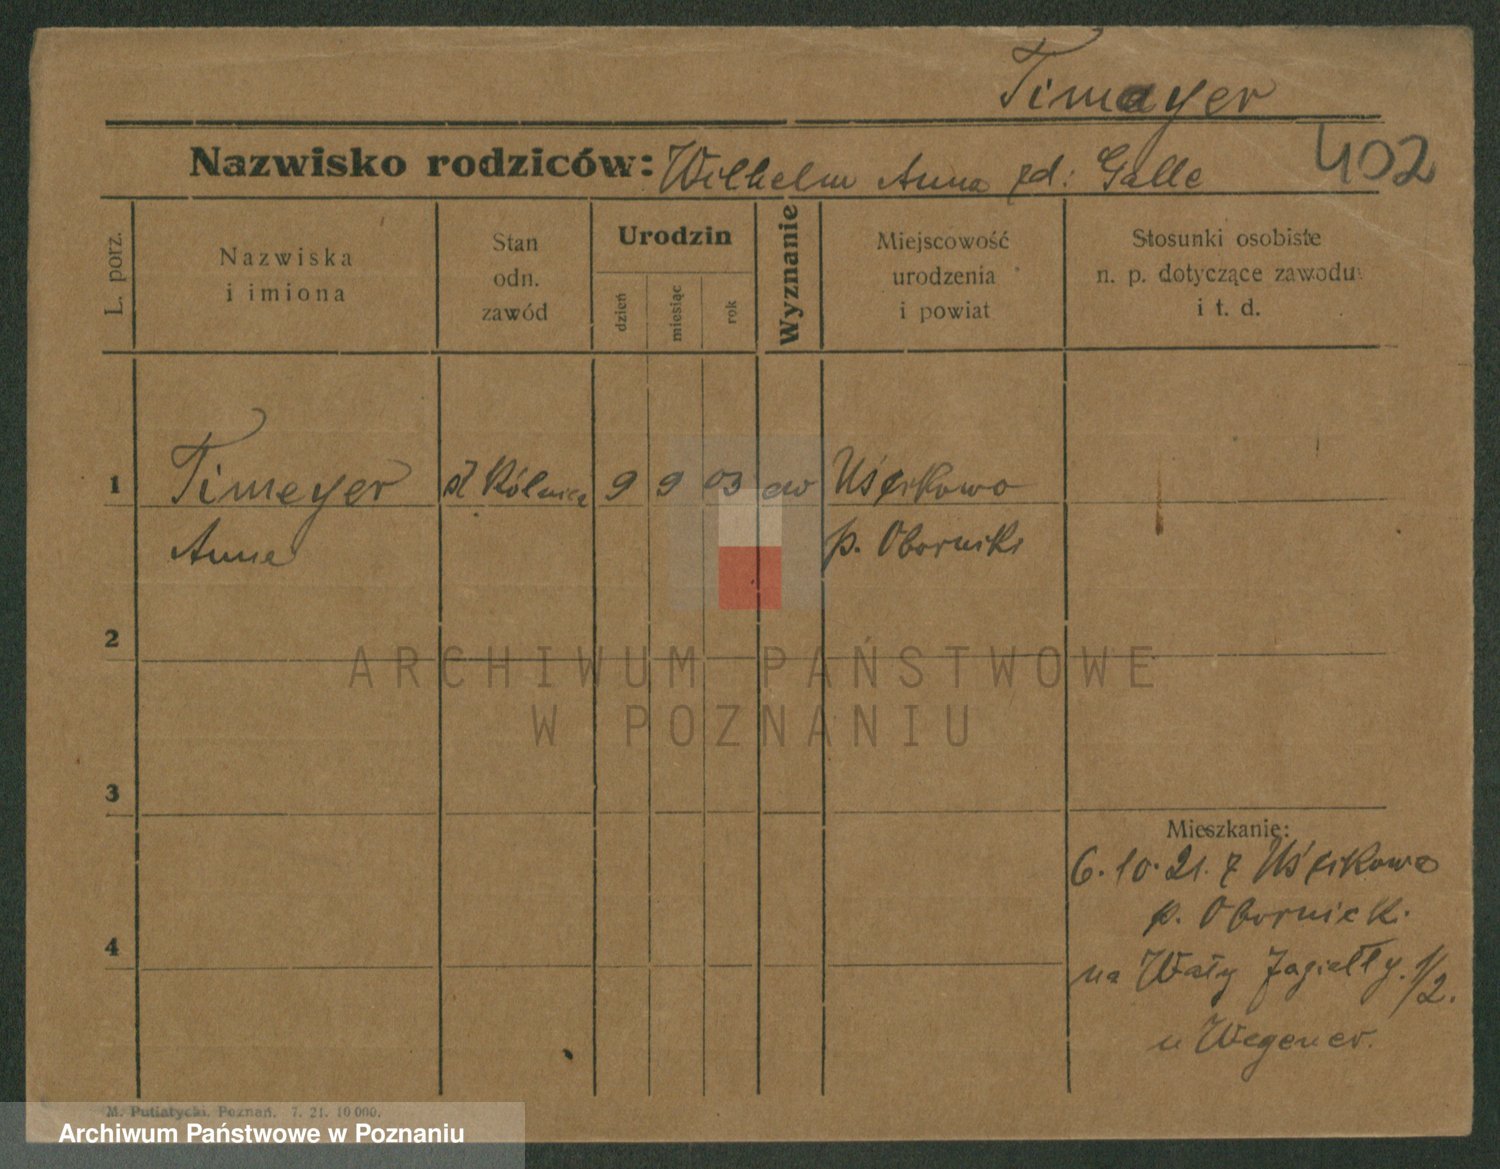 Timeyer
402
Nazwisko rodziców: Wilhelm Anna zd: Galle
L. porz.
Nazwiska
i imiona
Stan
odn.
zawód
Urodzin
dzień
miesiąc
rok
Wyznanie
Miejscowość
urodzenia
i powiat
Stosunki osobiste
n. p. dotyczące zawodu
i t. d.
1 Timeyer 9 9 03 ew Uścikowo
Anna p. Oborniki
2
ARCHIWUM PAŃSTWOWE
W POZNANIU
3
Mieszkanie:
6.10.21. z Uścikowo
p. Obornicki
4
na Wały Jagiełły. 1/2.
u Wegener.
M. Putiatycki. Poznań. 7. 21. 10 000.
Archiwum Państwowe w Poznaniu